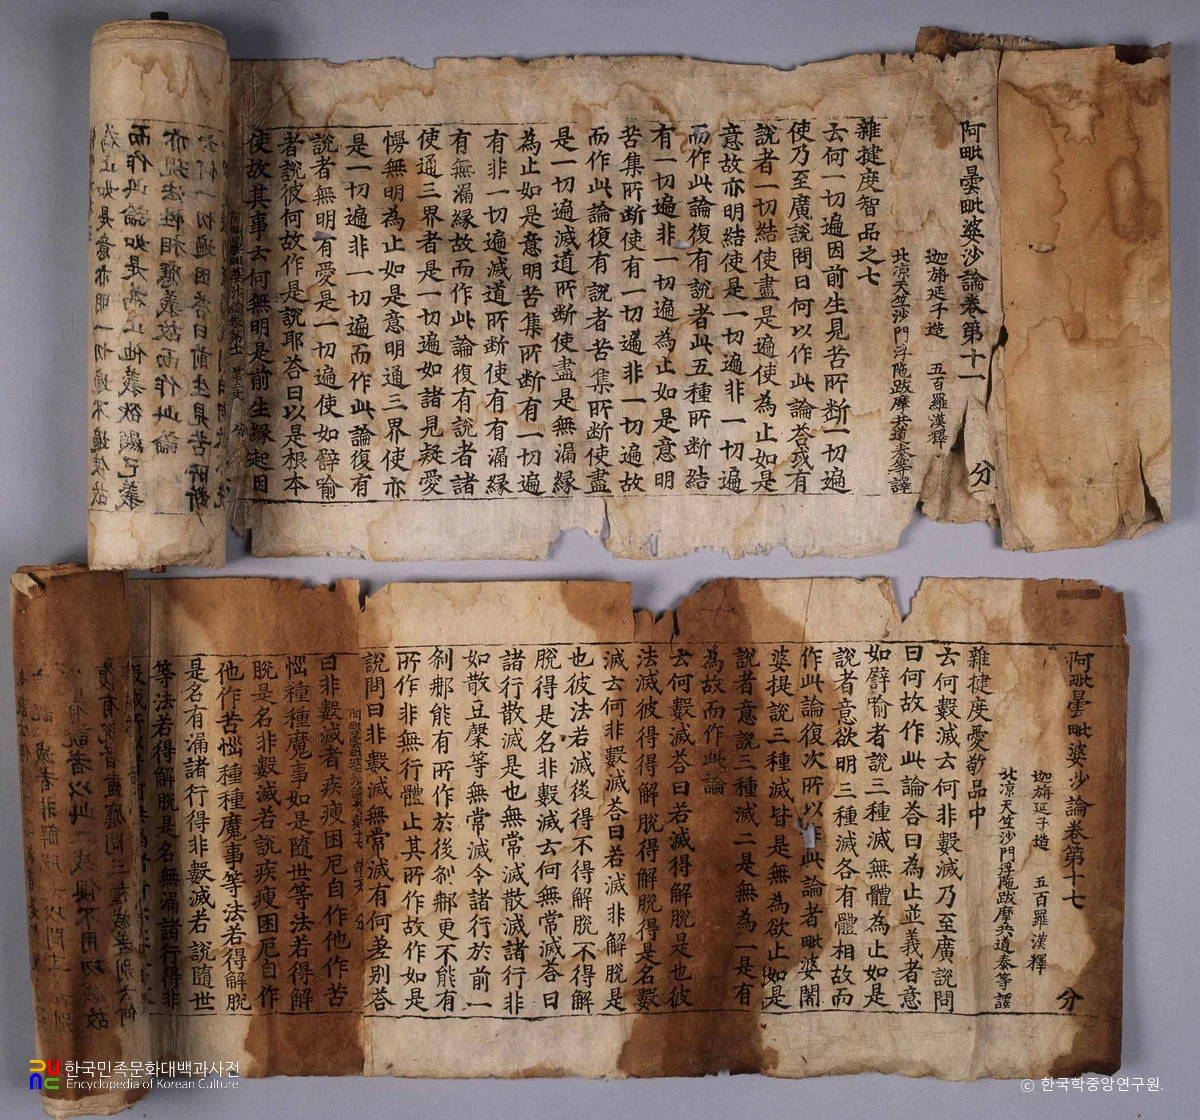 阿毗曇毗婆沙論卷第十一 分
迦旃延子造 五百羅漢釋
北涼天竺沙門浮陁跋摩共道泰等譯
雜揵度智品之七
云何一切遍因前生見苦所断一切遍
使乃至廣說問曰何以作此論荅或有
說者一切結使盡是遍使為止如是
意故亦明結使是一切遍非一切遍
而作此論復有說者此五種所断結
有一切遍非一切遍為止如是意明
苦集所断使有一切遍非一切遍故
而作此論復有說者苦集所断使盡
是一切遍滅道所断使盡是無漏縁
為止如是意明苦集所断有一切遍
有非一切遍滅道所断使有有漏縁
有無漏縁故而作此論復有說者諸
使通三界者是一切遍如諸見疑愛
慢無明為止如是意明通三界使亦
是一切遍非一切遍而作此論復有
說者無明有愛是一切遍使如譬喻
者說彼何故作是說耶荅曰以是根本
使故其事云何無明是前生縁起因
阿毗曇毗婆沙論卷第十七 分
迦旃延子造 五百羅漢釋
北涼天竺沙門浮陁跋摩共道泰等譯
雜揵度愛敬品中
云何數滅云何非數滅乃至廣說問
曰何故作此論荅曰為止並義者意
如譬喻者說三種滅無體為止如是
說者意欲明三種滅各有體相故而
作此論復次所以作此論者毗婆闍
婆提說三種滅皆是無為欲止如是
說者意說三種滅二是無為一是有
為故而作此論
云何數滅荅曰若滅得解脫是也彼
法滅彼得得解脫得解脫得是名數
滅云何非數滅荅曰若滅非解脫是
也彼法若滅後得不得解脫不得解
脫得是名非數滅云何無常滅荅曰
諸行散滅是也無常滅散滅諸行非
如散豆䅽等無常滅令諸行於前一
剎那能有所作於後剎那更不能有
所作非無行體止其所作故作如是
說問曰非數滅無常滅有何差別荅
曰非數滅者疾瘦困厄自作他作苦
惱種種魔事如是隨世等法若得解
脫是名非數滅若說疾瘦困厄自作
他作苦惱種種魔事等法若得解脫
是名有漏諸行得非數滅若說隨世
等法若得解脫是名無漏諸行得非
한국민족문화대백과사전
Encyclopedia of Korean Culture
ⓒ 한국학중앙연구원.